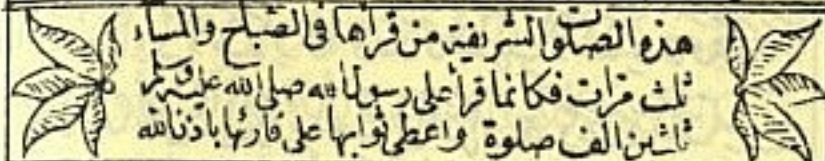 هذه الصلوات الشريفة من قرأها في الصباح والمساء
ثلث مرات فكانما قرأ على رسول الله صلى الله عليه وسلم
ثلثين الف صلوة واعطى ثوابها على قارئها باذن الله